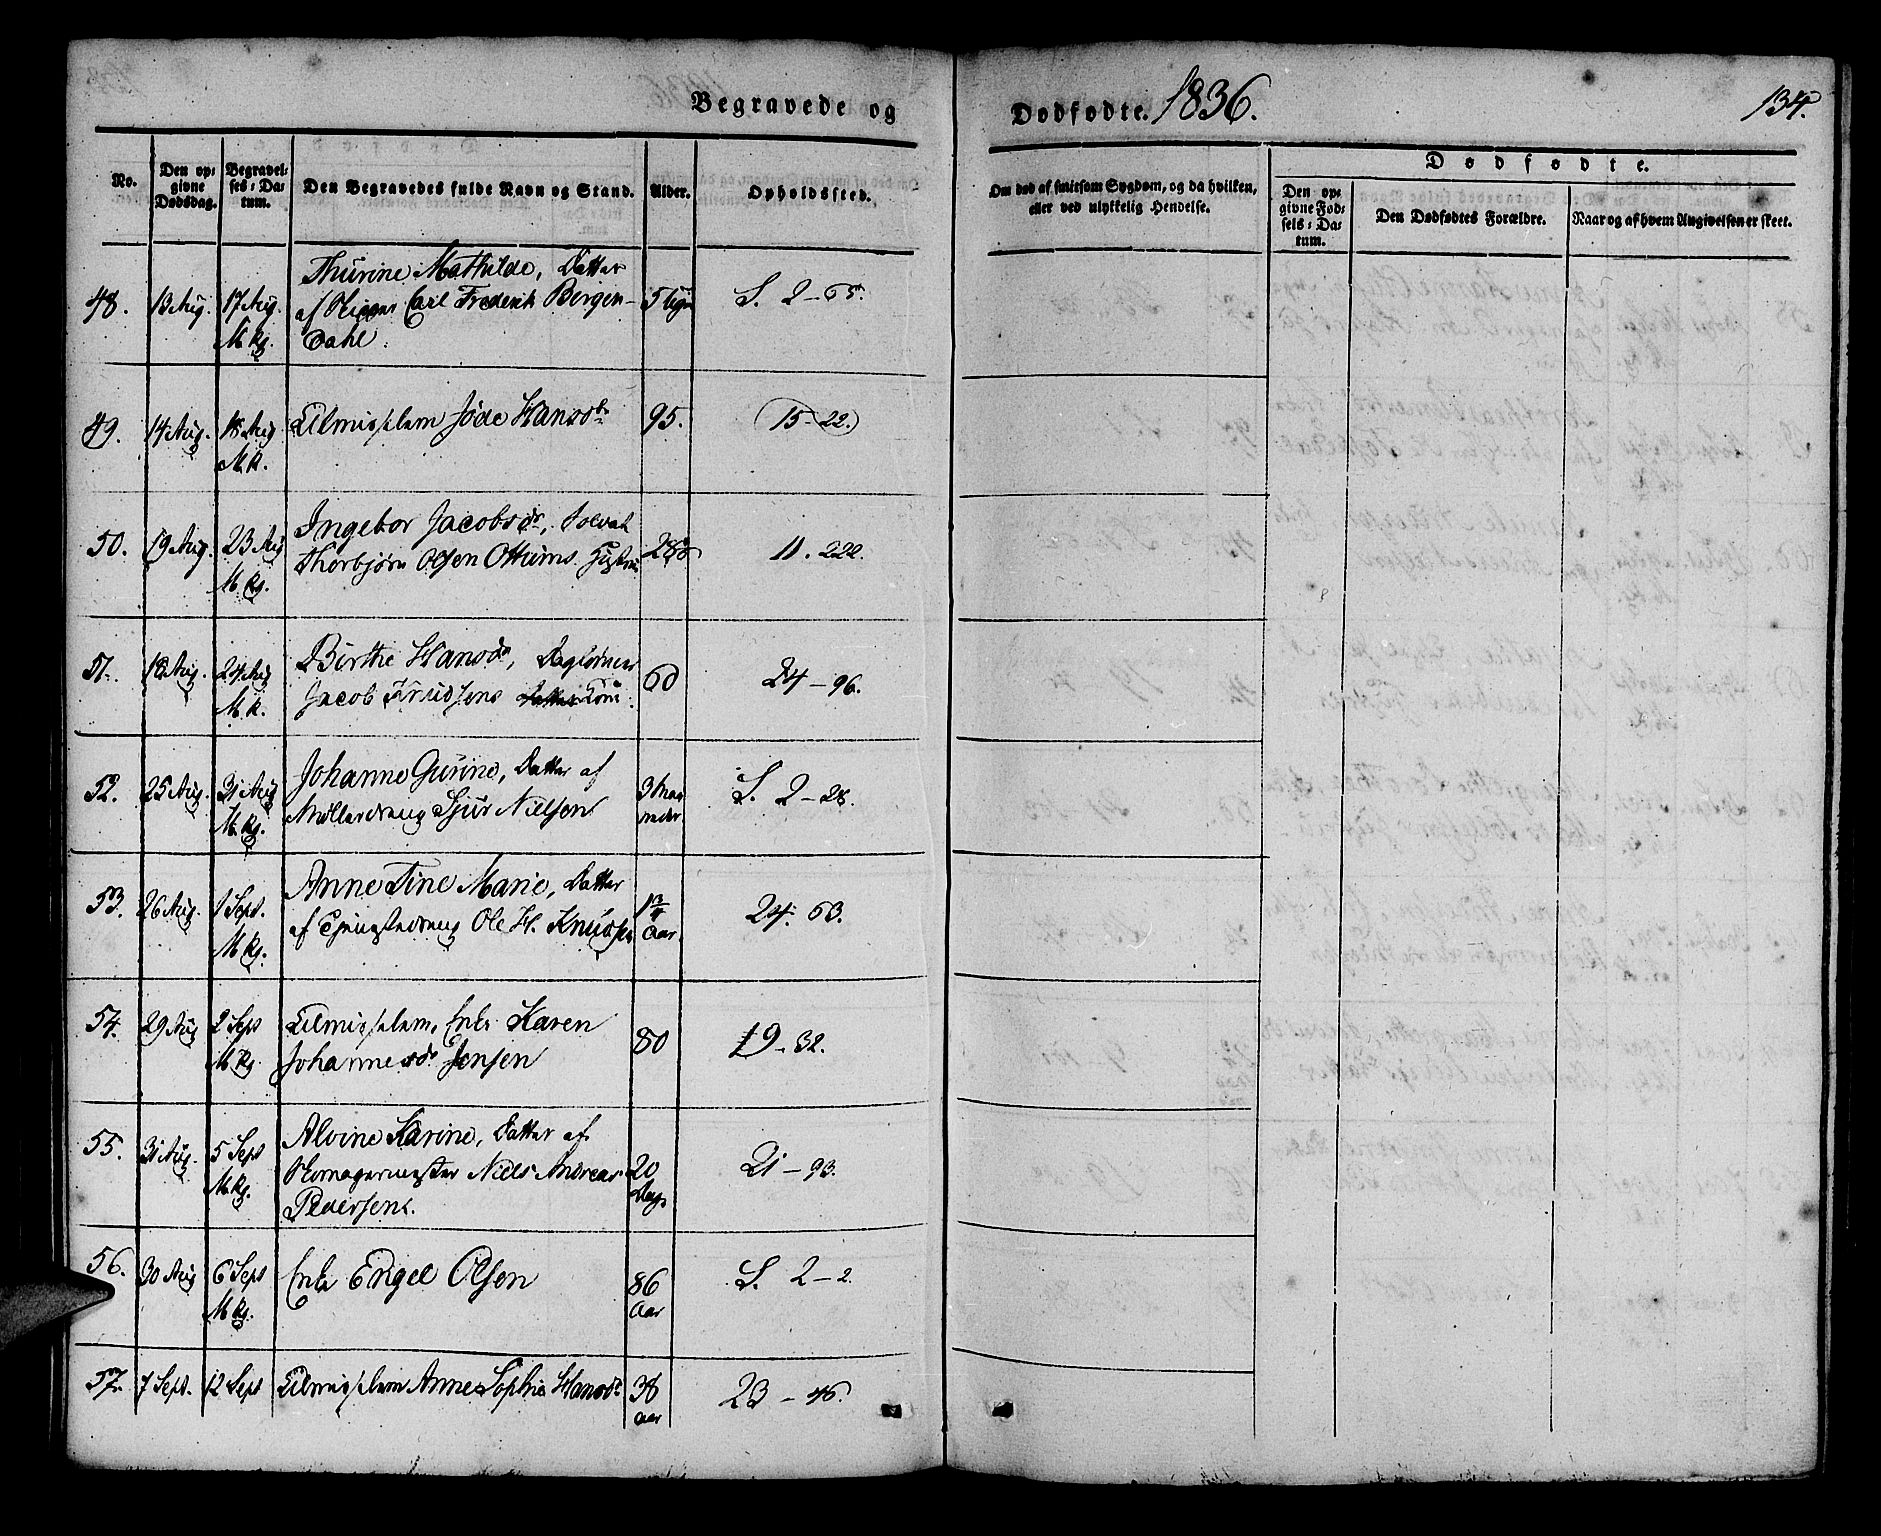 Begravede og
Dødfødte. 1836.
134.
No.
Den opgivne Dødsdag.
Begravelses-Datum.
Den Begravedes fulde Navn og Stand.
Alder.
Opholdssted.
Om død af smitsom Sygdom, og da hvilken, eller ved ulykkelig Hendelse.
Dødfødte.
Den opgivne Fødsels-Datum.
Den Dødfødtes Forældre.
Naar og af hvem Angivelsen er skeet.
48. 13 Aug. 17 Aug. M. Kg.
Thurine Mathilde, Datter
af Carl Frederik Bergen-
Dahl.
S. 2-65.
49. 14 Aug. 18 Aug M.K.
Almislem Hansdr 95. 15-22.
50. 19 Aug. 23 Aug M. Kg.
Ingebor Jacobsdr, Soldat
Thorbjørn Olsen Ottums Hustru
11. 222.
51. 18 Aug. 24 Aug M.K.
Birthe Hansdr, Daglønner
Jacob Knudsens Kone.
60 24-96.
52. 25 Aug. 31 Aug M. Kg.
Johanne Gurine, Datter af
Møllerdreng Sjur Nielsen
3 Maaneder
S. 2-28.
53. 26 Aug. 1 Sept. M. Kg.
Anne Tine Marie, Datter
af Ole H. Knudsen
1 3/4 Aar.
24. 63.
54. 29 Aug 2 Sept M. Kg.
Almislem, Enke Karen
Johannesdr Jensen
80 19-32.
55. 31 Aug. 5 Sept M. Kg.
Alvine Karine, Datter af
Niels Andreas
Pedersen.
20 Dage
21-93.
56. 30 Aug 6 Sept M Kg.
Enke Engel Olsen
86 Aar
S. 2-2.
57. 7 Sept. 12 Sept
Almislem Anne Sophie Hansdr
38 Aar
23-46.